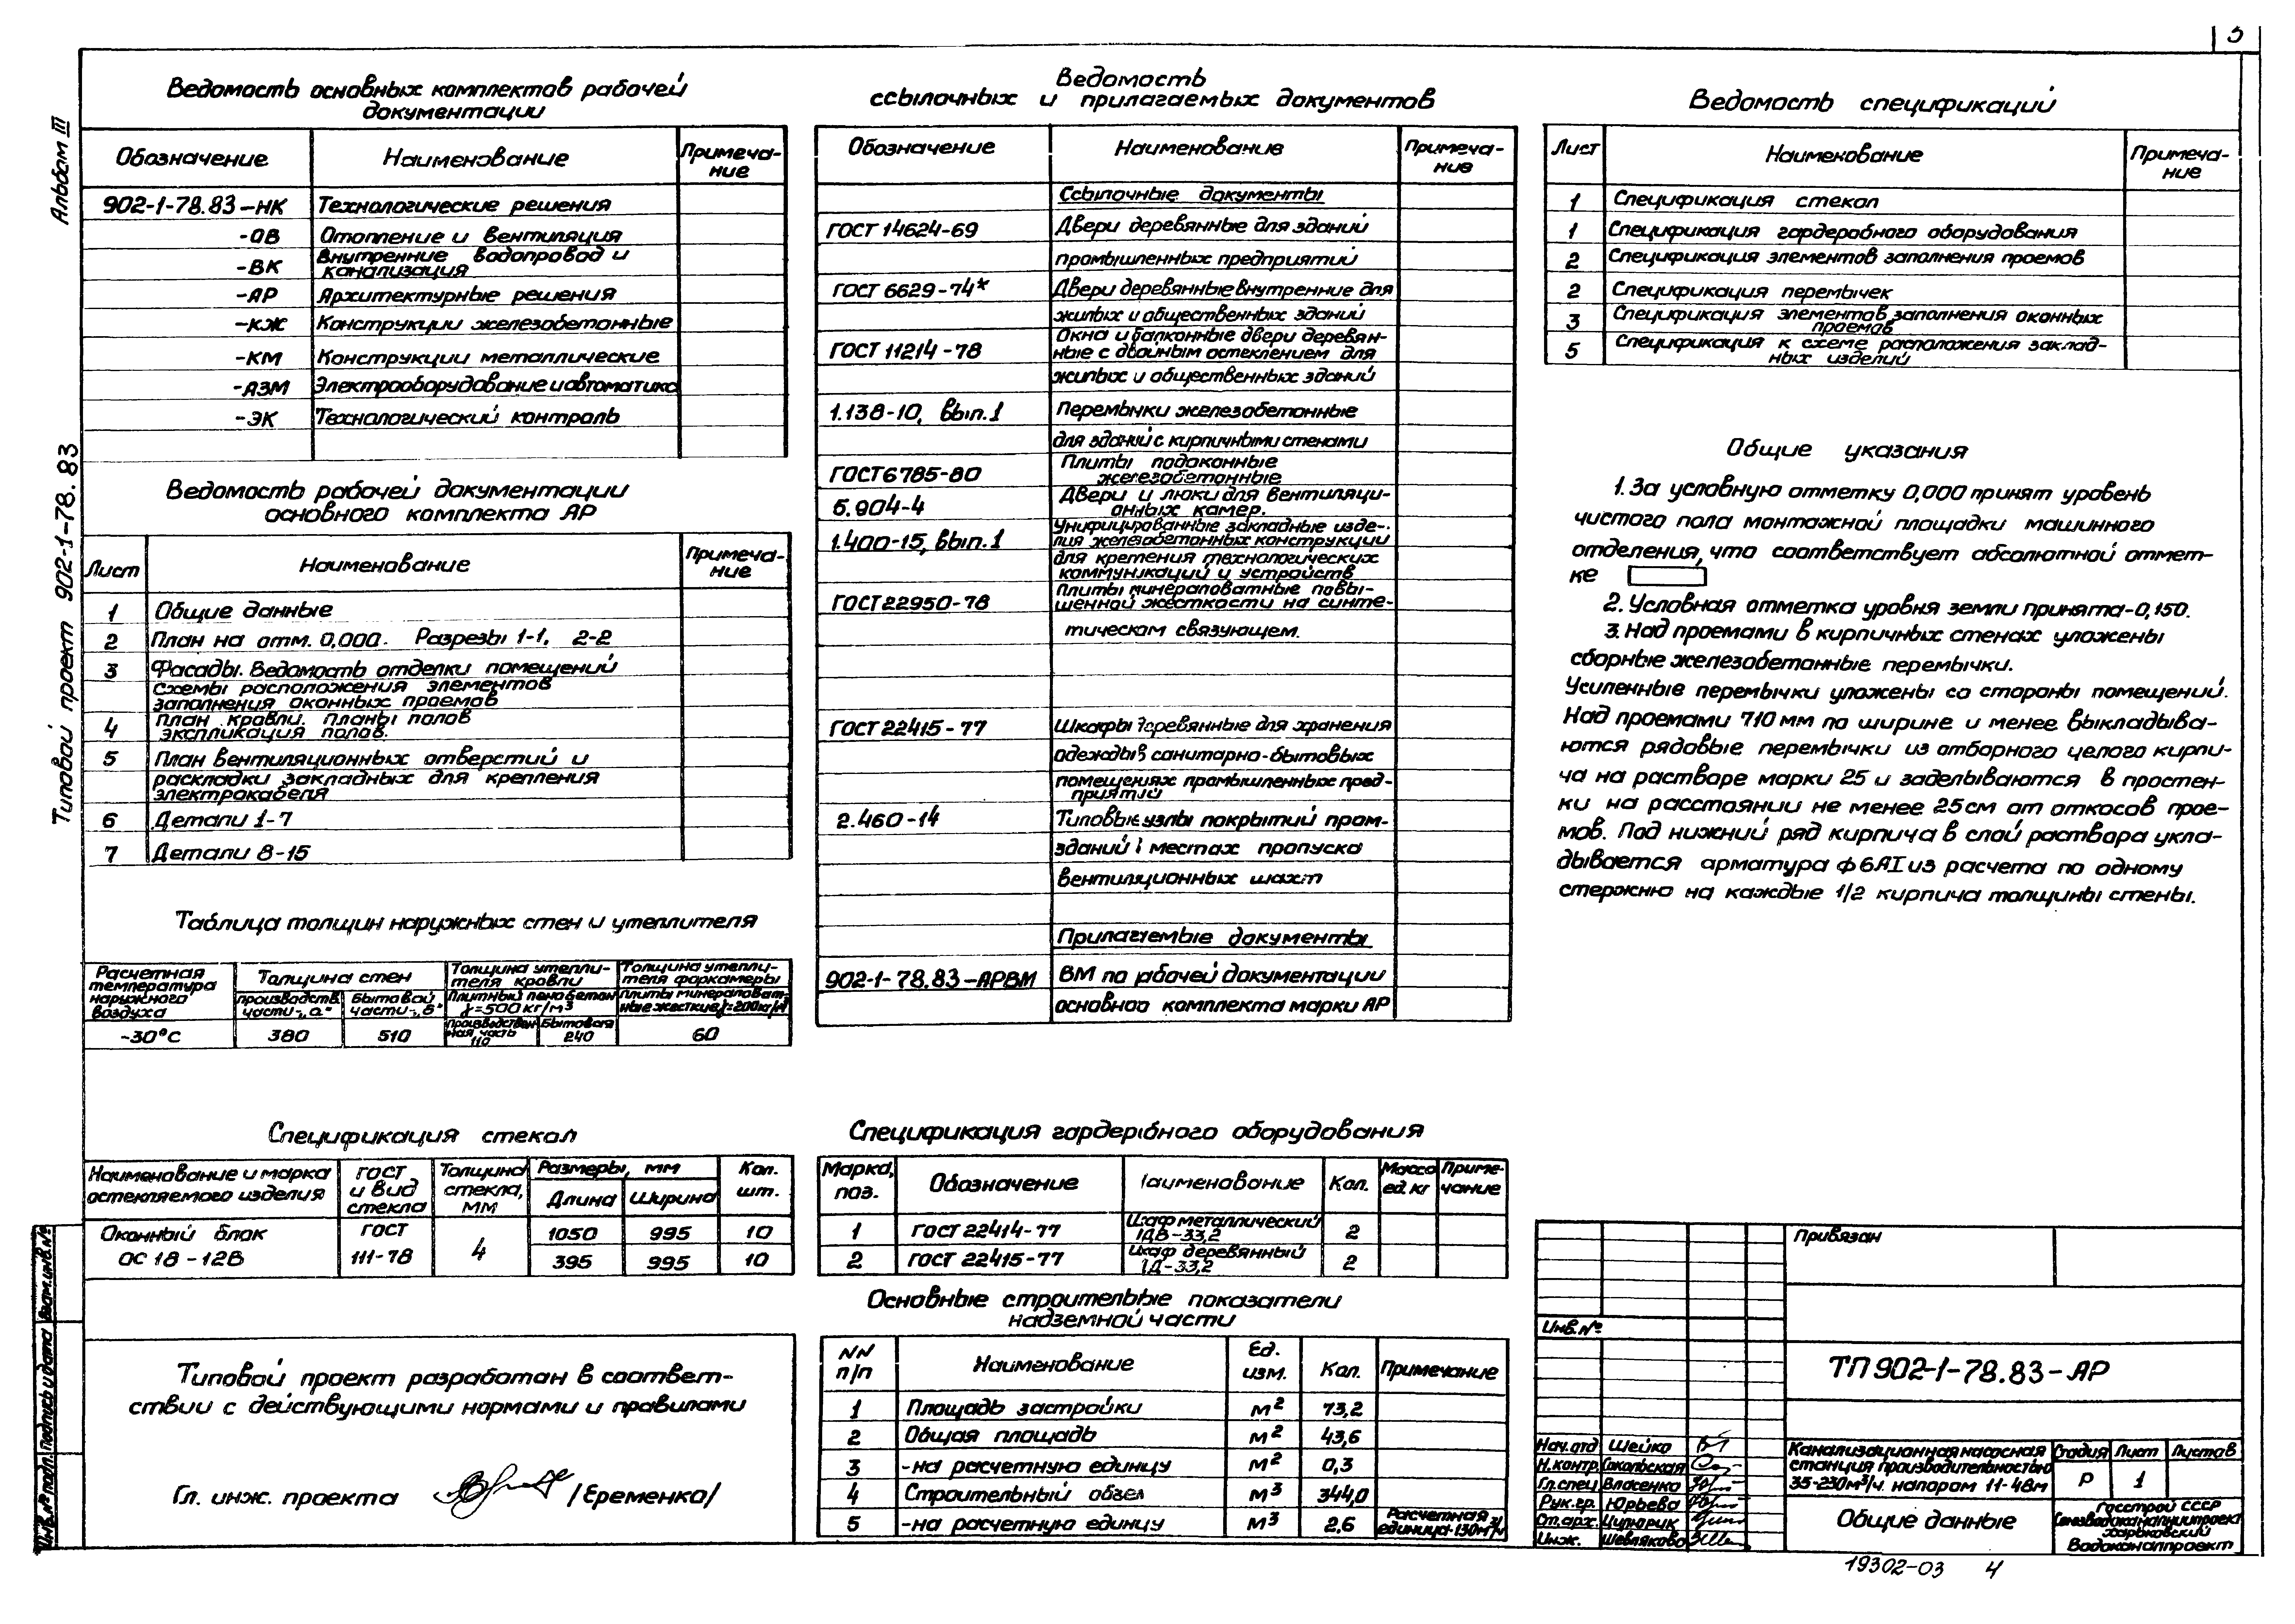 3
Альбом III
Типовой проект 902-1-78.83
Ведомость основных комплектов рабочей
документации
Обозначение Наименование Примеча-
ние
902-1-78.83-НК Технологические решения
-ОВ Отопление и вентиляция
-ВК Внутренние водопровод и
канализация
-АР Архитектурные решения
-КЖ Конструкции железобетонные
-КМ Конструкции металлические
-АЗМ Электрооборудование и автоматика
-ЭК Технологический контроль
Ведомость рабочей документации
основного комплекта АР
Лист Наименование Примеча-
ние
1 Общие данные
2 План на отм. 0,000. Разрезы 1-1, 2-2
3 Фасады. Ведомость отделки помещений
Схемы расположения элементов
заполнения оконных проемов
4 План кровли. Планы полов
экспликация полов.
5 План вентиляционных отверстий и
раскладки закладных для крепления
электрокабеля
6 Детали 1-7
7 Детали 8-15
Таблица толщин наружных стен и утеплителя
Расчетная
температура
наружного
воздуха
Толщина стен
производств.
части-„а"
Бытовой
части-„б"
Толщина утепли-
теля кровли
Плитный пенобетон
γ=500 кг/м³
Толщина утепли-
теля форкамеры
Плиты минераловат-
ные жесткие γ=200кг/м³
-30°С 380 510
Производствен
ная часть
110
Бытовая
240
60
Спецификация стекол
Наименование и марка
остекляемого изделия
ГОСТ
и вид
стекла
Толщина
стекла,
мм
Размеры, мм
Длина Ширина
Кол.
шт.
Оконный блок
ОС 18-12В
ГОСТ
111-78
4
1050 995 10
395 995 10
Типовой проект разработан в соответ-
ствии с действующими нормами и правилами
Гл. инж. проекта /Еременко/
Ведомость
ссылочных и прилагаемых документов
Обозначение Наименование Примеча-
ние
Ссылочные документы
ГОСТ 14624-69 Двери деревянные для зданий
промышленных предприятий
ГОСТ 6629-74* Двери деревянные внутренние для
жилых и общественных зданий
ГОСТ 11214-78 Окна и балконные двери деревян-
ные с двойным остеклением для
жилых и общественных зданий
1.138-10, вып.1 Перемычки железобетонные
для зданий с кирпичными стенами
ГОСТ 6785-80 Плиты подоконные
железобетонные
5.904-4 Двери и люки для вентиляци-
онных камер.
1.400-15, вып.1 Унифицированные закладные изде-
лия железобетонных конструкции
для крепения технологических
коммуникаций и устройств
ГОСТ 22950-78 Плиты минераловатные повы-
шенной жесткости на синте-
тическом связующем.
ГОСТ 22415-77 Шкафы деревянные для хранения
одежды в санитарно-бытовых
помещениях промышленных пред-
приятий
2.460-14 Типовые узлы покрытий пром-
зданий в местах пропуска
вентиляционных шахт
Прилагаемые документы
902-1-78.83-АРВМ ВМ по рабочей документации
основного комплекта марки АР
Спецификация гардеробного оборудования
Марка,
поз.
Обозначение Наименование Кол.
Масса
ед. кг
Приме-
чание
1 ГОСТ 22414-77 Шкаф металлический
1ДВ-33,2 2
2 ГОСТ 22415-77 Шкаф деревянный
1Д-33,2 2
Основные строительные показатели
надземной части
NN
п/п
Наименование
Ед.
изм.
Кол. Примечание
1 Площадь застройки м² 73,2
2 Общая площадь м² 43,6
3 -на расчетную единцу м² 0,3
4 Строительный объем м³ 344,0
5 -на расчетную единцу м³ 2,6 Расчетная
единица-130м³/ч
Ведомость спецификаций
Лист Наименование Примеча-
ние
1 Спецификация стекол
1 Спецификация гардеробного оборудования
2 Спецификация элементов заполнения проемов
2 Спецификация перемычек
3 Спецификация элементов заполнения оконных
проемов
5 Спецификация к схеме расположения заклад-
ных изделий
Общие указания
1. За условную отметку 0,000 принят уровень
чистого пола монтажной площадки машинного
отделения, что соответствует абсолютной отмет-
ке
2. Условная отметка уровня земли принята-0,150.
3. Над проемами в кирпичных стенах уложены
сборные железобетонные перемычки.
Усиленные перемычки уложены со стороны помещений.
Над проемами 710 мм по ширине и менее выкладыва-
ются рядовые перемычки из отборного целого кирпи-
ча на растворе марки 25 и заделываются в простен-
ки на расстоянии не менее 25 см от откосов прое-
мов. Под нижний ряд кирпича в слой раствора укла-
дывается арматура ф 6АI из расчета по одному
стержню на каждые 1/2 кирпича толщины стены.
Привязан
Инв.№
ТП 902-1-78.83-АР
Нач.отд Шейко
Н.контр. Сокольская
Гл.спец Власенко
Рук.гр. Юрьева
Ст.арх. Ципюрик
Инж. Шевлякова
Канализационная насосная
станция производительностью
35-230м³/ч. напором 11-48м
Стадия Лист Листов
Р 1
Общие данные
Госстрой СССР
Союзводоканалниипроект
Харьковский
Водоканалпроект
Инв.№ подл. Подпись и дата Взам.инв.№
19302-03 4